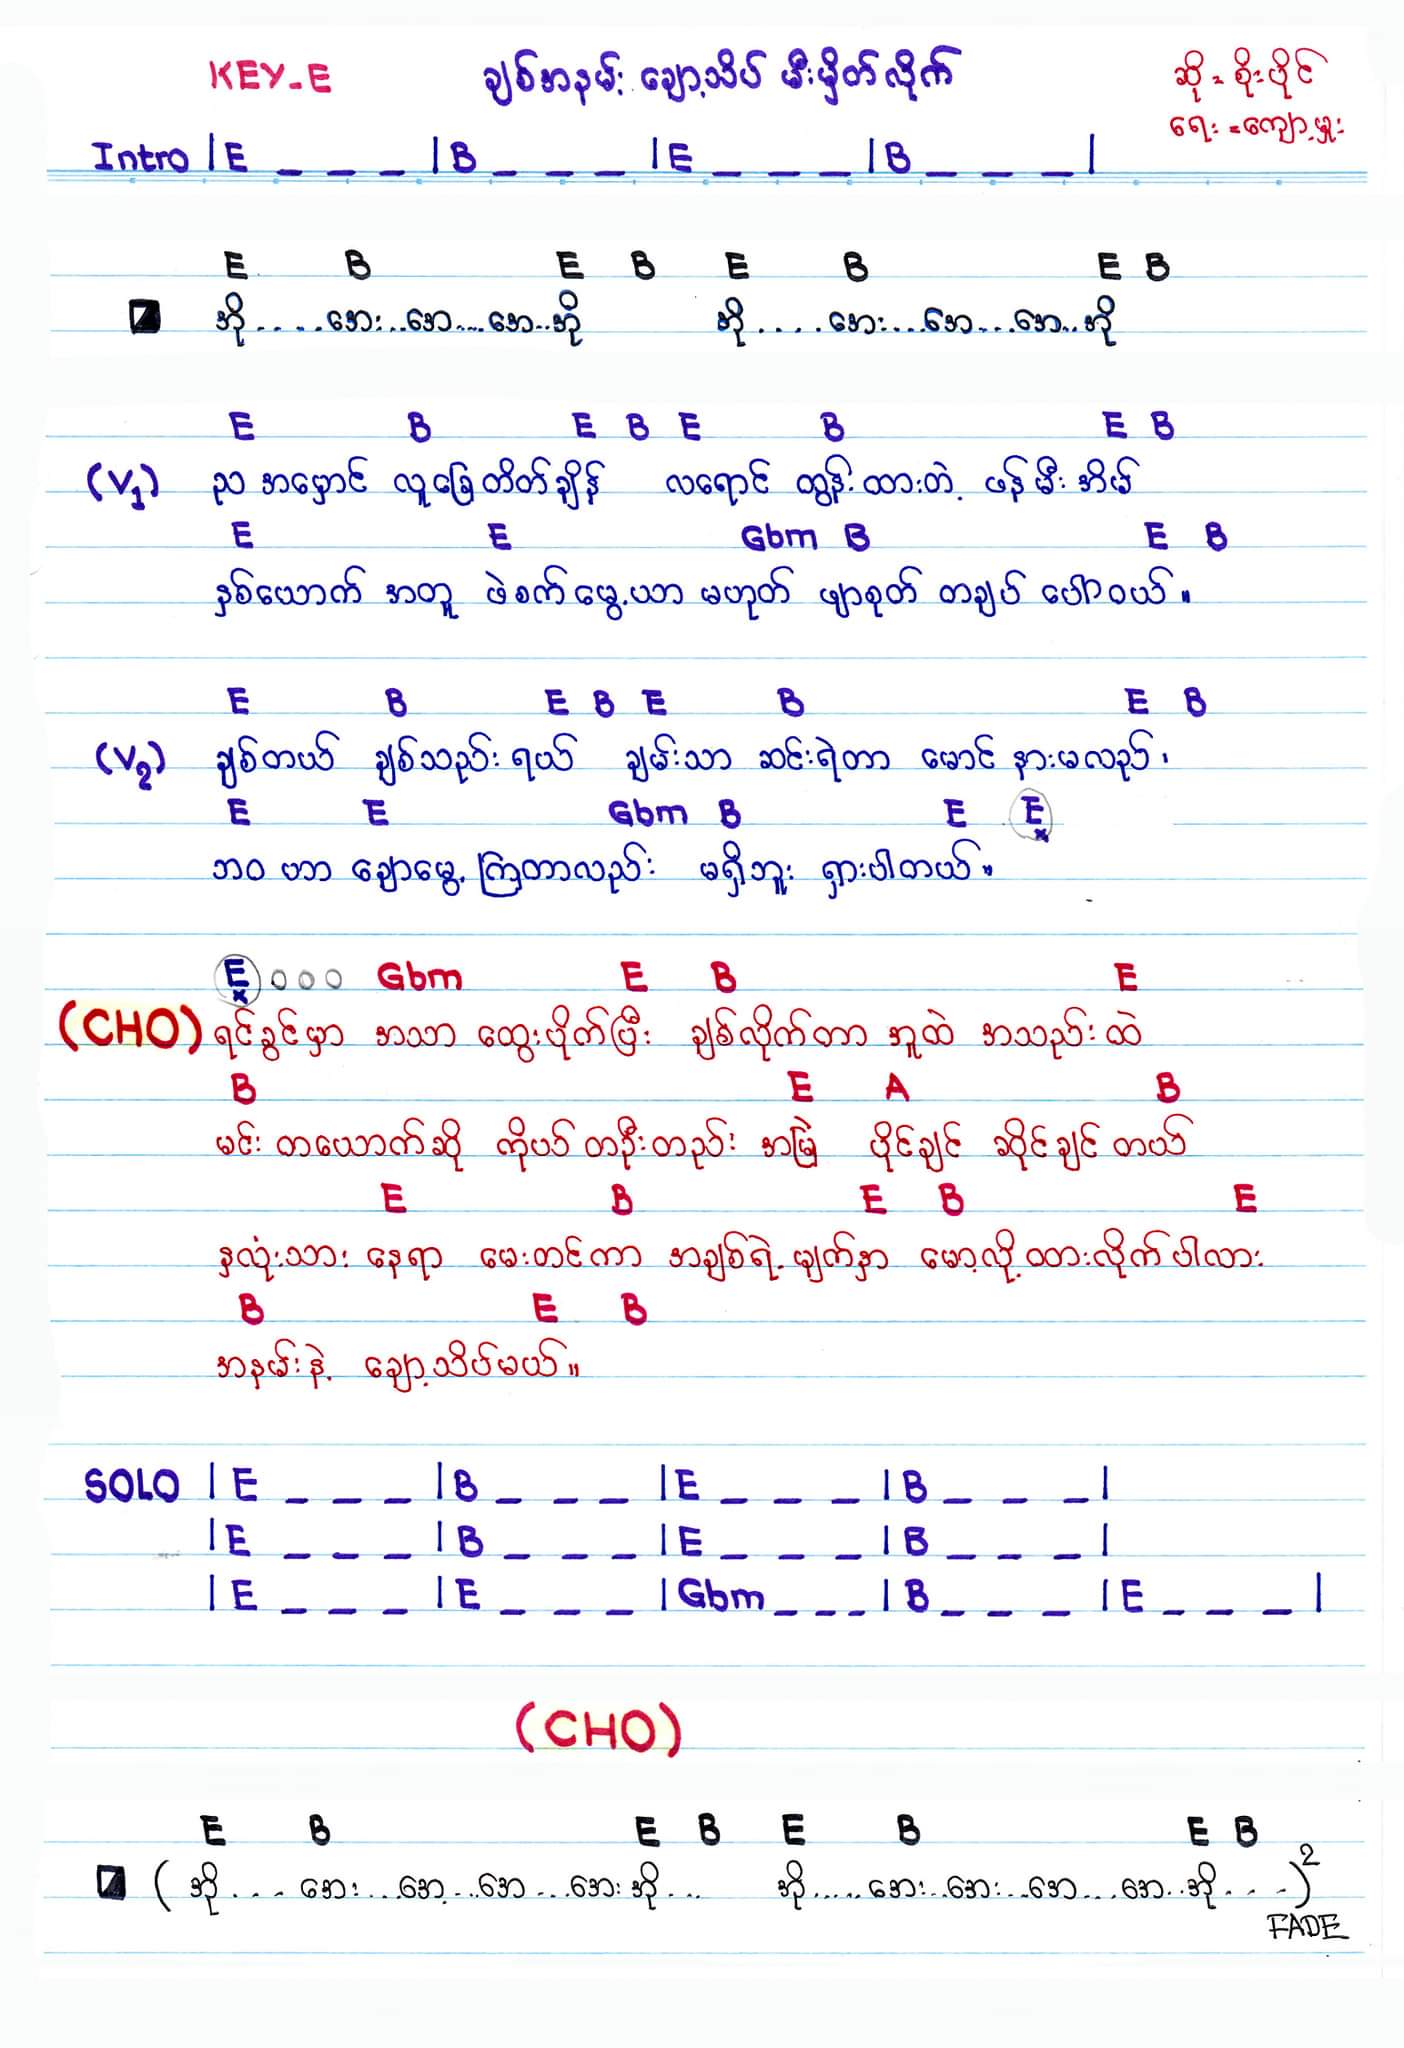 KEY-E ချစ်အနမ်း ချော့သိပ် မီးမှိတ်လိုက် ဆို = စိုးပိုင်
ရေး = ကျော့မှူး
Intro |E _ _ _ |B _ _ _ |E _ _ _ |B _ _ _ |
E B E B E B E B
အို.....အေး...အေ....အေ..အို အို.....အေး...အေ....အေ..အို
E B E B E B E B
(V1) ည အမှောင် လူခြေတိတ်ချိန် လရောင် ထွန်းထားတဲ့ ဖန်မီးအိမ်
E E Gbm B E B
နှစ်ယောက် အတူ ဖဲစက်မွေ့ယာ မဟုတ် ဖျာစုတ် တချပ် ပေါ်ဝယ်။
E B E B E B E B
(V2) ချစ်တယ် ချစ်သည်းရယ် ချမ်းသာ ဆင်းရဲတာ မောင် နားမလည်၊
E E Gbm B E E
x
ဘဝ ဟာ ချောမွေ့ကြတာလည်း မရှိဘူး ရှားပါတယ်။
E o o o Gbm E B E
x
(CHO) ရင်ခွင်မှာ အသာ ထွေးပိုက်ပြီး ချစ်လိုက်တာ အူထဲ အသည်းထဲ
B E A B
မင်း တယောက်ဆို ကိုယ် တဦးတည်း အမြဲ ပိုင်ချင် ဆိုင်ချင် တယ်
E B E B E
နှလုံးသား နေရာ မေးတင်ကာ အချစ်ရဲ့ မျက်နှာ မော့လို့ထားလိုက်ပါလား
B E B
အနမ်းနဲ့ ချော့သိပ်မယ်။
SOLO |E _ _ _ |B _ _ _ |E _ _ _ |B _ _ _ |
|E _ _ _ |B _ _ _ |E _ _ _ |B _ _ _ |
|E _ _ _ |E _ _ _ |Gbm _ _ _ |B _ _ _ |E _ _ _ |
(CHO)
E B E B E B E B
(အို.... အေး...အေ....အေ...အေးအို... အို.....အေး..အေး...အေ....အေ..အို....)2
FADE